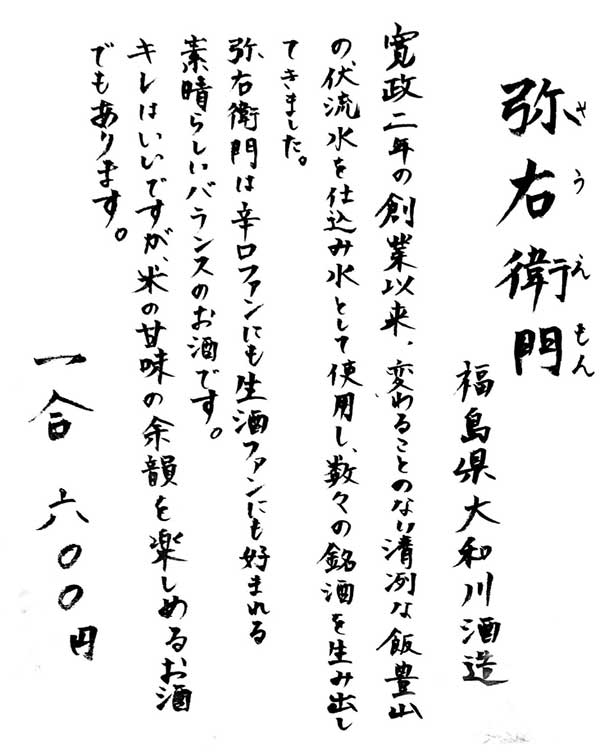 弥右衛門
やうえもん
福島県大和川酒造
寛政二年の創業以来、変わることのない清冽な飯豊山
の伏流水を仕込み水として使用し、数々の銘酒を生み出し
てきました。
弥右衛門は辛口ファンにも生酒ファンにも好まれる
素晴らしいバランスのお酒です。
キレはいいですが、米の甘味の余韻を楽しめるお酒
でもあります。
一合 六〇〇円